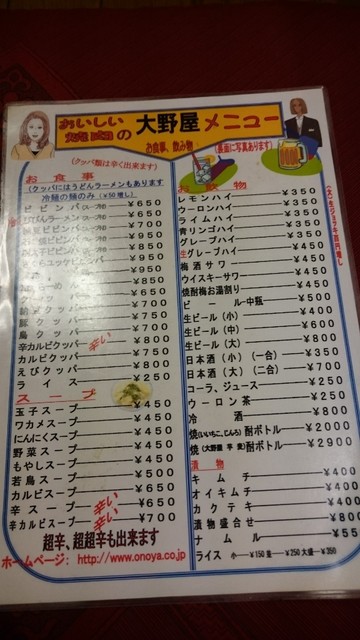 おいしい
焼肉の 大野屋 メニュー
お食事、飲み物
(裏面に写真あります)
(クッパ類は辛く出来ます)
お食事
(クッパにはうどんラーメンもあります
冷麺の麺のみ(¥50増し)
¥650
¥700
¥950
¥950
¥850
¥950
¥850
¥650
¥700
豚クッパ ¥750
鳥クッパ ¥700
辛カルビクッパ 辛い ¥800
カルビクッパ ¥750
えびクッパ ¥800
ライス ¥250
スープ
玉子スープ ¥450
ワカメスープ ¥450
にんにくスープ ¥450
野菜スープ ¥450
もやしスープ ¥450
若鳥スープ ¥500
カルビスープ ¥650
辛スープ 辛い ¥650
辛カルビスープ 辛い ¥700
超辛、超超辛も出来ます
ホームページ: http://www.onoya.co.jp
お飲物
レモンハイ ¥350
ウーロンハイ ¥350
ライムハイ ¥350
青リンゴハイ ¥350
グレープハイ ¥350
生グレープハイ ¥450
梅酒サワー ¥450
ウイスキーサワー ¥450
焼酎梅お湯割り ¥450
ビール中瓶 ¥500
生ビール(小) ¥400
生ビール(中) ¥600
生ビール(大) ¥800
日本酒(小)(一合) ¥350
日本酒(大)(二合) ¥700
コーラ、ジュース ¥250
ウーロン茶 ¥250
冷酒 ¥800
焼(いいちこ,じんろ)酎ボトル ¥2000
焼(大野屋 芋 麦)酎ボトル ¥2900
漬物
キムチ ¥400
オイキムチ ¥400
カクテキ ¥400
漬物盛合せ ¥800
ナムル ¥550
ライス 小―¥150 並―¥250 大盛―¥350
(大)生ジョッキ百円増し